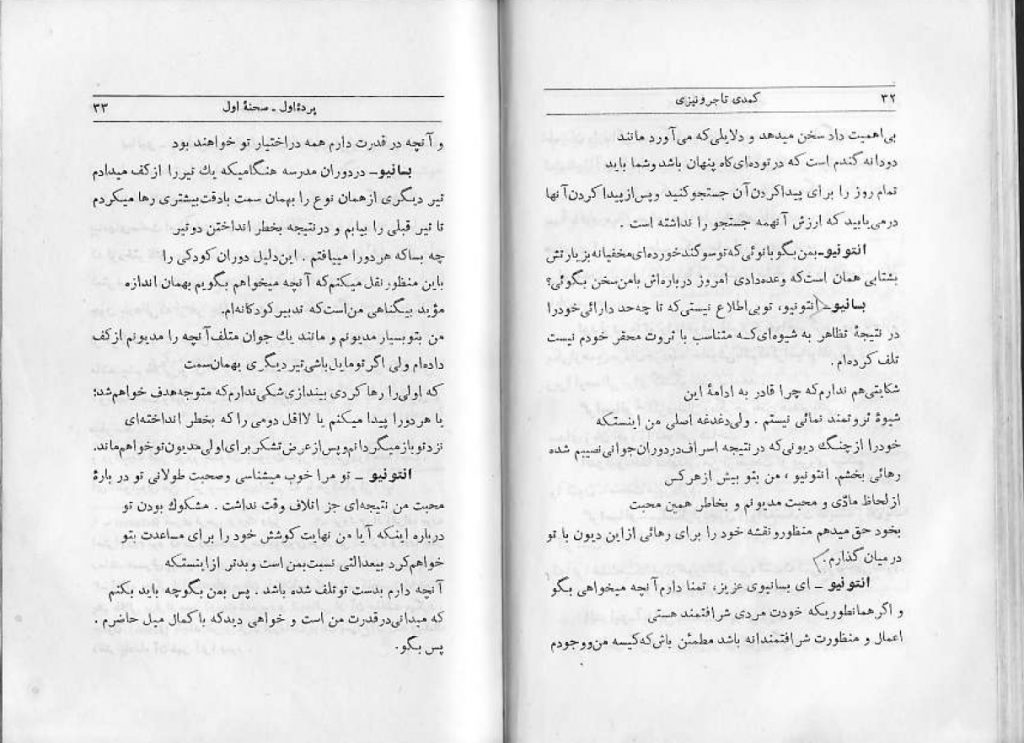 ۳۲
کمدی تاجر ونیزی
بی اهمیت داد سخن میدهد و دلایلی که می آورد مانند
دودانه گندم است که در توده‌ای کاه پنهان باشد وشما باید
تمام روز را برای پیدا کردن آن جستجو کنید و پس از پیدا کردن آنها
درمی‌یابید که ارزش آنهمه جستجو را نداشته است .
انتونیو ـ بمن بگو بانوئی که تو سوگند خورده‌ای مخفیانه بزیارتش
بشتابی همان است که وعده دادی امروز درباره‌اش بامن سخن بگوئی؟
بسانیو ـ انتونیو، تو بی اطلاع نیستی که تا چه حد دارائی خود را
در نتیجهٔ تظاهر به شیوه‌ای کــه متناسب با ثروت محقر خودم نیست
تلف کرده‌ام .
شکایتی هم ندارم که چرا قادر به ادامهٔ این
شیوهٔ ثروتمند نمائی نیستم . ولی دغدغه اصلی من اینستکه
خود را از چنگ دیونی که در نتیجه اسراف در دوران جوانی نصیبم شده
رهائی بخشم. انتونیو ، من بتو بیش از هر کس
از لحاظ مادّی و محبت مدیونم و بخاطر همین محبت
بخود حق میدهم منظور و نقشه خود را برای رهائی از این دیون با تو
در میان گذارم .
انتونیو ـ ای بسانیوی عزیز، تمنا دارم آنچه میخواهی بگو
و اگر همانطوریکه خودت مردی شرافتمند هستی
اعمال و منظورت شرافتمندانه باشد مطمئن باش که کیسه من و وجودم
پردهٔ اول ـ صحنهٔ اول
۳۳
و آنچه در قدرت دارم همه در اختیار تو خواهند بود
بسانیو ـ در دوران مدرسه هنگامیکه یك تیر را از کف میدادم
تیر دیگری از همان نوع را بهمان سمت بادقت بیشتری رها میکردم
تا تیر قبلی را بیابم و در نتیجه بخطر انداختن دو تیر
چه بسا که هر دو را مییافتم . این دلیل دوران کودکی را
باین منظور نقل میکنم که آنچه میخواهم بگویم بهمان اندازه
مؤید بیگناهی من است که تدبیر کودکانه‌ام.
من بتو بسیار مدیونم و مانند یك جوان متلف آنچه را مدیونم از کف
داده‌ام ولی اگر تو مایل باشی تیر دیگری بهمان سمت
که اولی را رها کردی بیندازی شکی ندارم که متوجه هدف خواهم شد؛
یا هر دو را پیدا میکنم یا لااقل دومی را که بخطر انداخته‌ای
نزد تو باز میگردانم و پس از عرض تشکر برای اولی مدیون تو خواهم ماند.
انتونیو ـ تو مرا خوب میشناسی وصحبت طولانی تو در بارهٔ
محبت من نتیجه‌ای جز اتلاف وقت نداشت . مشکوك بودن تو
درباره اینکه آیا من نهایت کوشش خود را برای مساعدت بتو
خواهم کرد بیعدالتی نسبت بمن است و بدتر از اینستکه
آنچه دارم بدست تو تلف شده باشد . پس بمن بگو چه باید بکنم
که میدانی در قدرت من است و خواهی دید که با کمال میل حاضرم .
پس بگو.